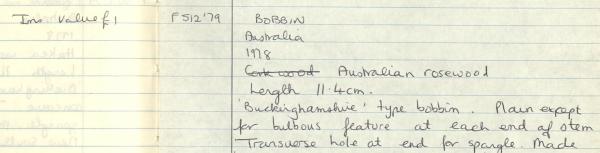 Ins. Value £1 F512'79 BOBBIN
Australia
1978
Cork wood Australian rosewood
Length 11.4cm.
'Buckinghamshire' type bobbin. Plain except
for bulbous feature at each end of stem
Transverse hole at end for spangle. Made